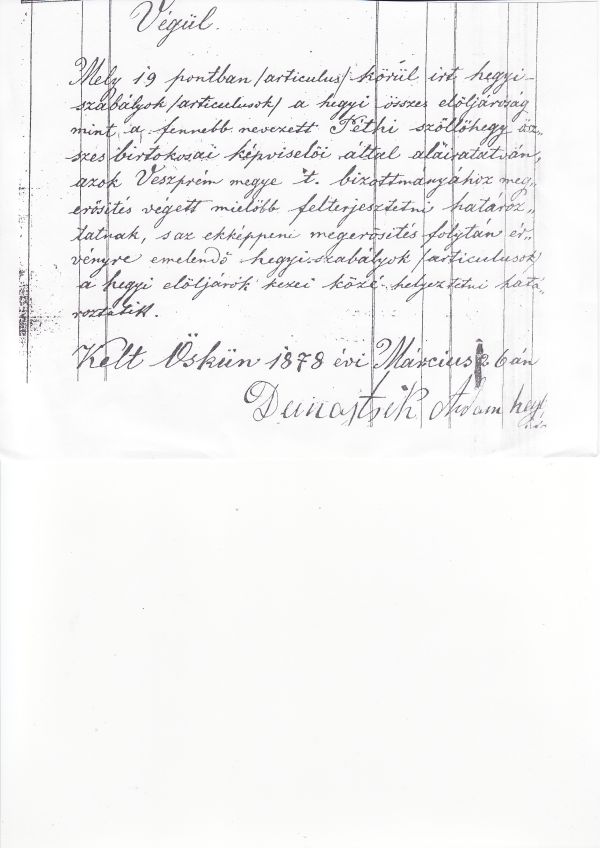 Végül.
Mely 19 pontban /articulus/ körül irt hegyi-
szabályok /articulusok/ a hegyi összes elöljáróság
mint a fennebb nevezett Péthi szöllöhegy ösz„
szes birtokosai képviselöi által aláiratatván,
azok Veszprém megye t. bizottmányához meg„
erösités végett mielöbb felterjesztetni határoz„
tatnak, s az ekképpeni megerösités folytán ér„
vényre emelendő hegyi szabályok /articulusok/
a hegyi elöljárók kezei közé helyeztetni hatá„
roztatik.
Kelt Öskün 1878 évi Március 26án
Dunajtsik Ádám hegy